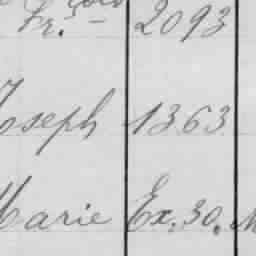 Fr.s 2093
Joseph 1363
Marie Ex. 30. M